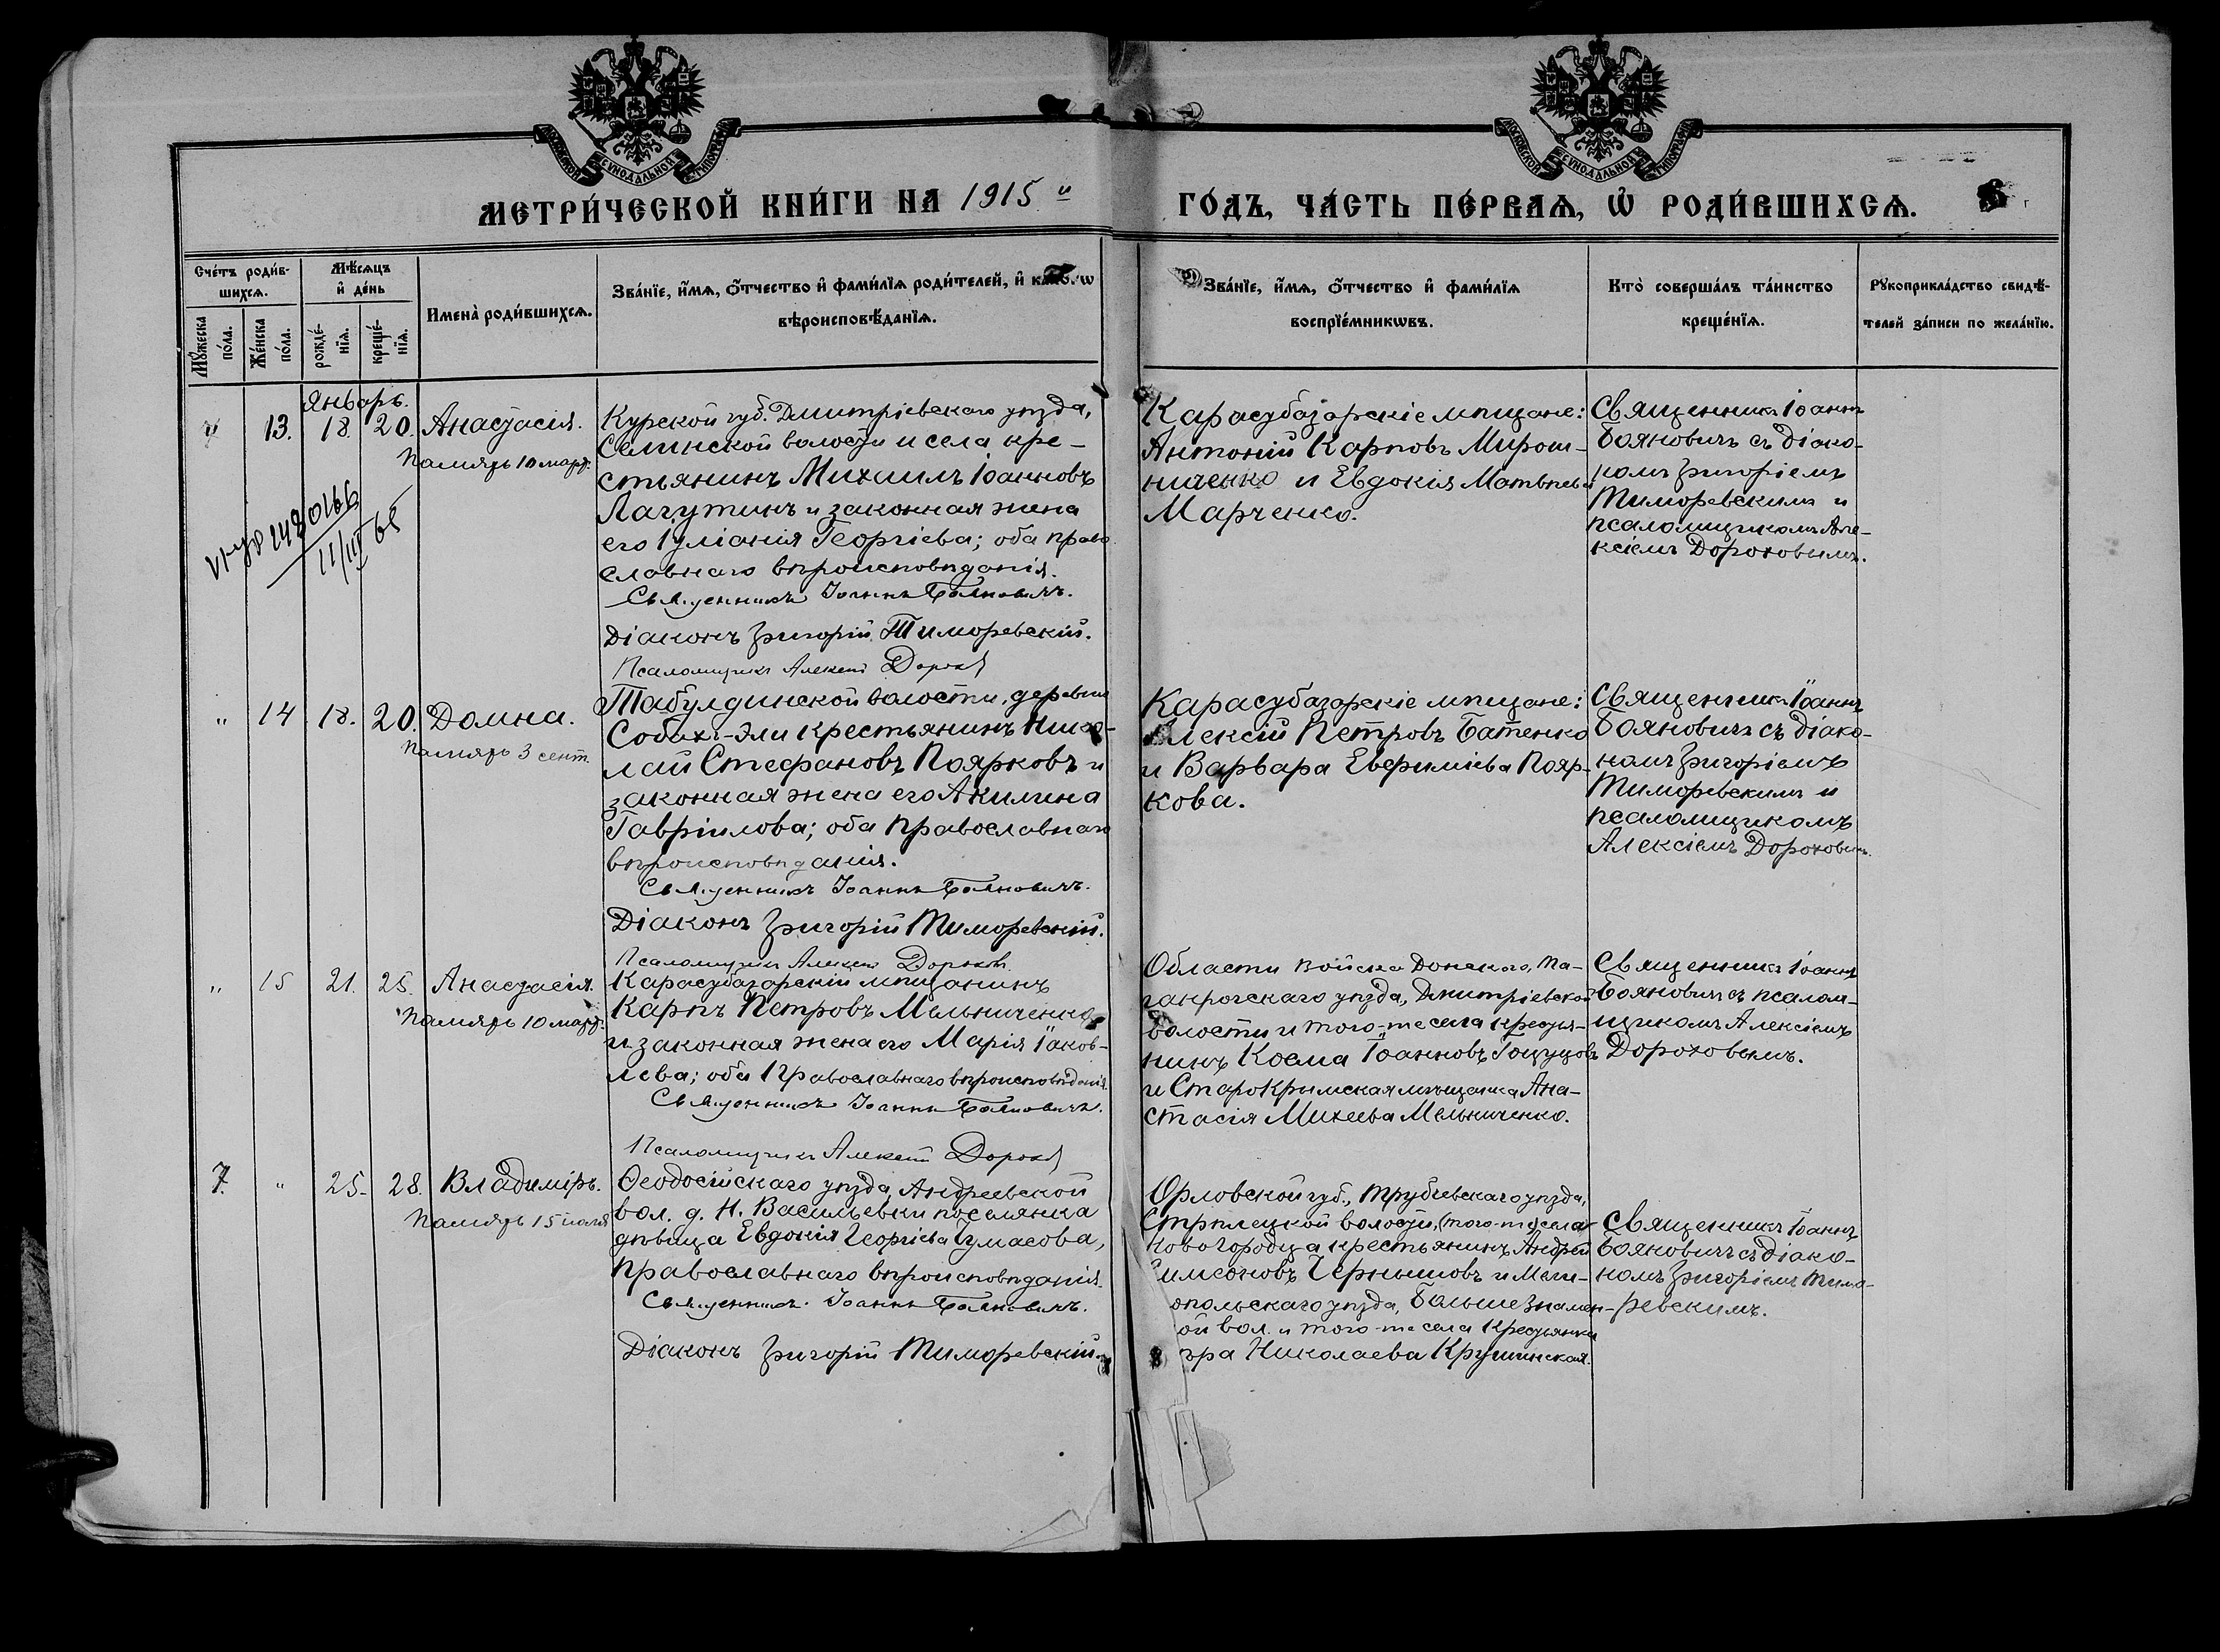 МОСКОВСКОЙ СѴНОДАЛЬНОЙ ТИПОГРАФІИ
МОСКОВСКОЙ СѴНОДАЛЬНОЙ ТИПОГРАФІИ
МЕТРИ́ЧЕСКОЙ КНИ́ГИ НА 1915 й
ГО́ДЪ, ЧА́СТЬ ПЕ́РВАѦ, Ѡ҆ РОДИ́ВШИХСѦ.
Сче́тъ роди́в-
шихсѧ.
Мꙋ́жеска по́ла.
Же́нска по́ла.
Мѣ́сѧцъ
и҆ де́нь
рожде́-
нїѧ.
креще́-
нїѧ.
Имена̀ роди́вшихсѧ.
Зва́нїе, и҆́мѧ, ѻ҆́тчество и҆ фами́лїѧ роди́телей, и҆ како́гѡ
вѣроисповѣ́данїѧ.
Зва́нїе, и҆́мѧ, ѻ҆́тчество и҆ фами́лїѧ
воспрїе́мникѡвъ.
Кто̀ соверша́лъ та́инство
креще́нїѧ.
Рꙋкоприкла́дство свидѣ́-
телей за́писи по жела́нїю.
Январь.
13. 18. 20. Анастасія.
Память 10 март.
11/III 65
Курской губ. Дмитріевскаго уѣзда,
Селинской волости и села кре-
стьянинъ Михаилъ Іоанновъ
Лагутинъ и законная жена
его Іуліанія Георгіева; оба право
славнаго вѣроисповѣданія.
Священникъ Іоаннъ Бояновичъ.
Діаконъ Григорій Тиморевскій.
Псаломщикъ Алексій Дорохов
Карасубазарскіе мѣщане:
Антоній Карповъ Мирош-
ниченко и Евдокія Матвѣева
Марченко.
Священникъ Іоаннъ
Бояновичъ съ діако-
номъ Григоріемъ
Тиморевскимъ и
псаломщикомъ Але-
ксіемъ Дороховымъ.
" 14 18. 20. Домна.
Память 3 сент.
Табулдинской волости, деревни
Собахъ-Эли крестьянинъ Нико-
лай Стефановъ Поярковъ и
законная жена его Акилина
Гавріилова; оба православнаго
вѣроисповѣданія.
Священникъ Іоаннъ Бояновичъ.
Діаконъ Григорій Тиморевскій.
Псаломщикъ Алексій Дорохов
Карасубазарскіе мѣщане:
Алексій Петровъ Батенко
и Варвара Евфиміева Пояр-
кова.
Священникъ Іоаннъ
Бояновичъ съ діако-
номъ Григоріемъ
Тиморевскимъ и
псаломщикомъ
Алексіемъ Дороховымъ.
" 15 21. 25. Анастасія.
Память 10 март.
Карасубазарскій мѣщанинъ
Карпъ Петровъ Мельниченко
и законная жена его Марія Іаков-
лева; оба православнаго вѣроисповѣданія.
Священникъ Іоаннъ Бояновичъ.
Псаломщикъ Алексій Дорохов
Области Войска Донского, Та-
ганрогскаго уѣзда, Дмитріевской
волости и того-же села крестья-
нинъ Косма Іоанновъ Гоцуцовъ
и Старокрымская мѣщанка Ана-
стасія Михеева Мельниченко.
Священникъ Іоаннъ
Бояновичъ съ псалом-
щикомъ Алексіемъ
Дороховымъ.
7. " 25. 28. Владиміръ.
Память 15 іюля
Ѳеодосійскаго уѣзда, Андреевской
вол. д. Н. Васильевки поселянка
дѣвица Евдокія Георгіева Чумасова,
православнаго вѣроисповѣданія.
Священникъ Іоаннъ Бояновичъ.
Діаконъ Григорій Тиморевскій.
Орловской губ., Трубчевскаго уѣзда,
Стрѣлецкой волости, (того-же) села
Новогородца крестьянинъ Андрей
Симеоновъ Чернышовъ и Мели-
опольскаго уѣзда, Больше Знамен-
ой вол. и того-же села крестьянка
ра Николаева Крушинская.
Священникъ Іоаннъ
Бояновичъ съ діако-
номъ Григоріемъ Тимо-
ревскимъ.